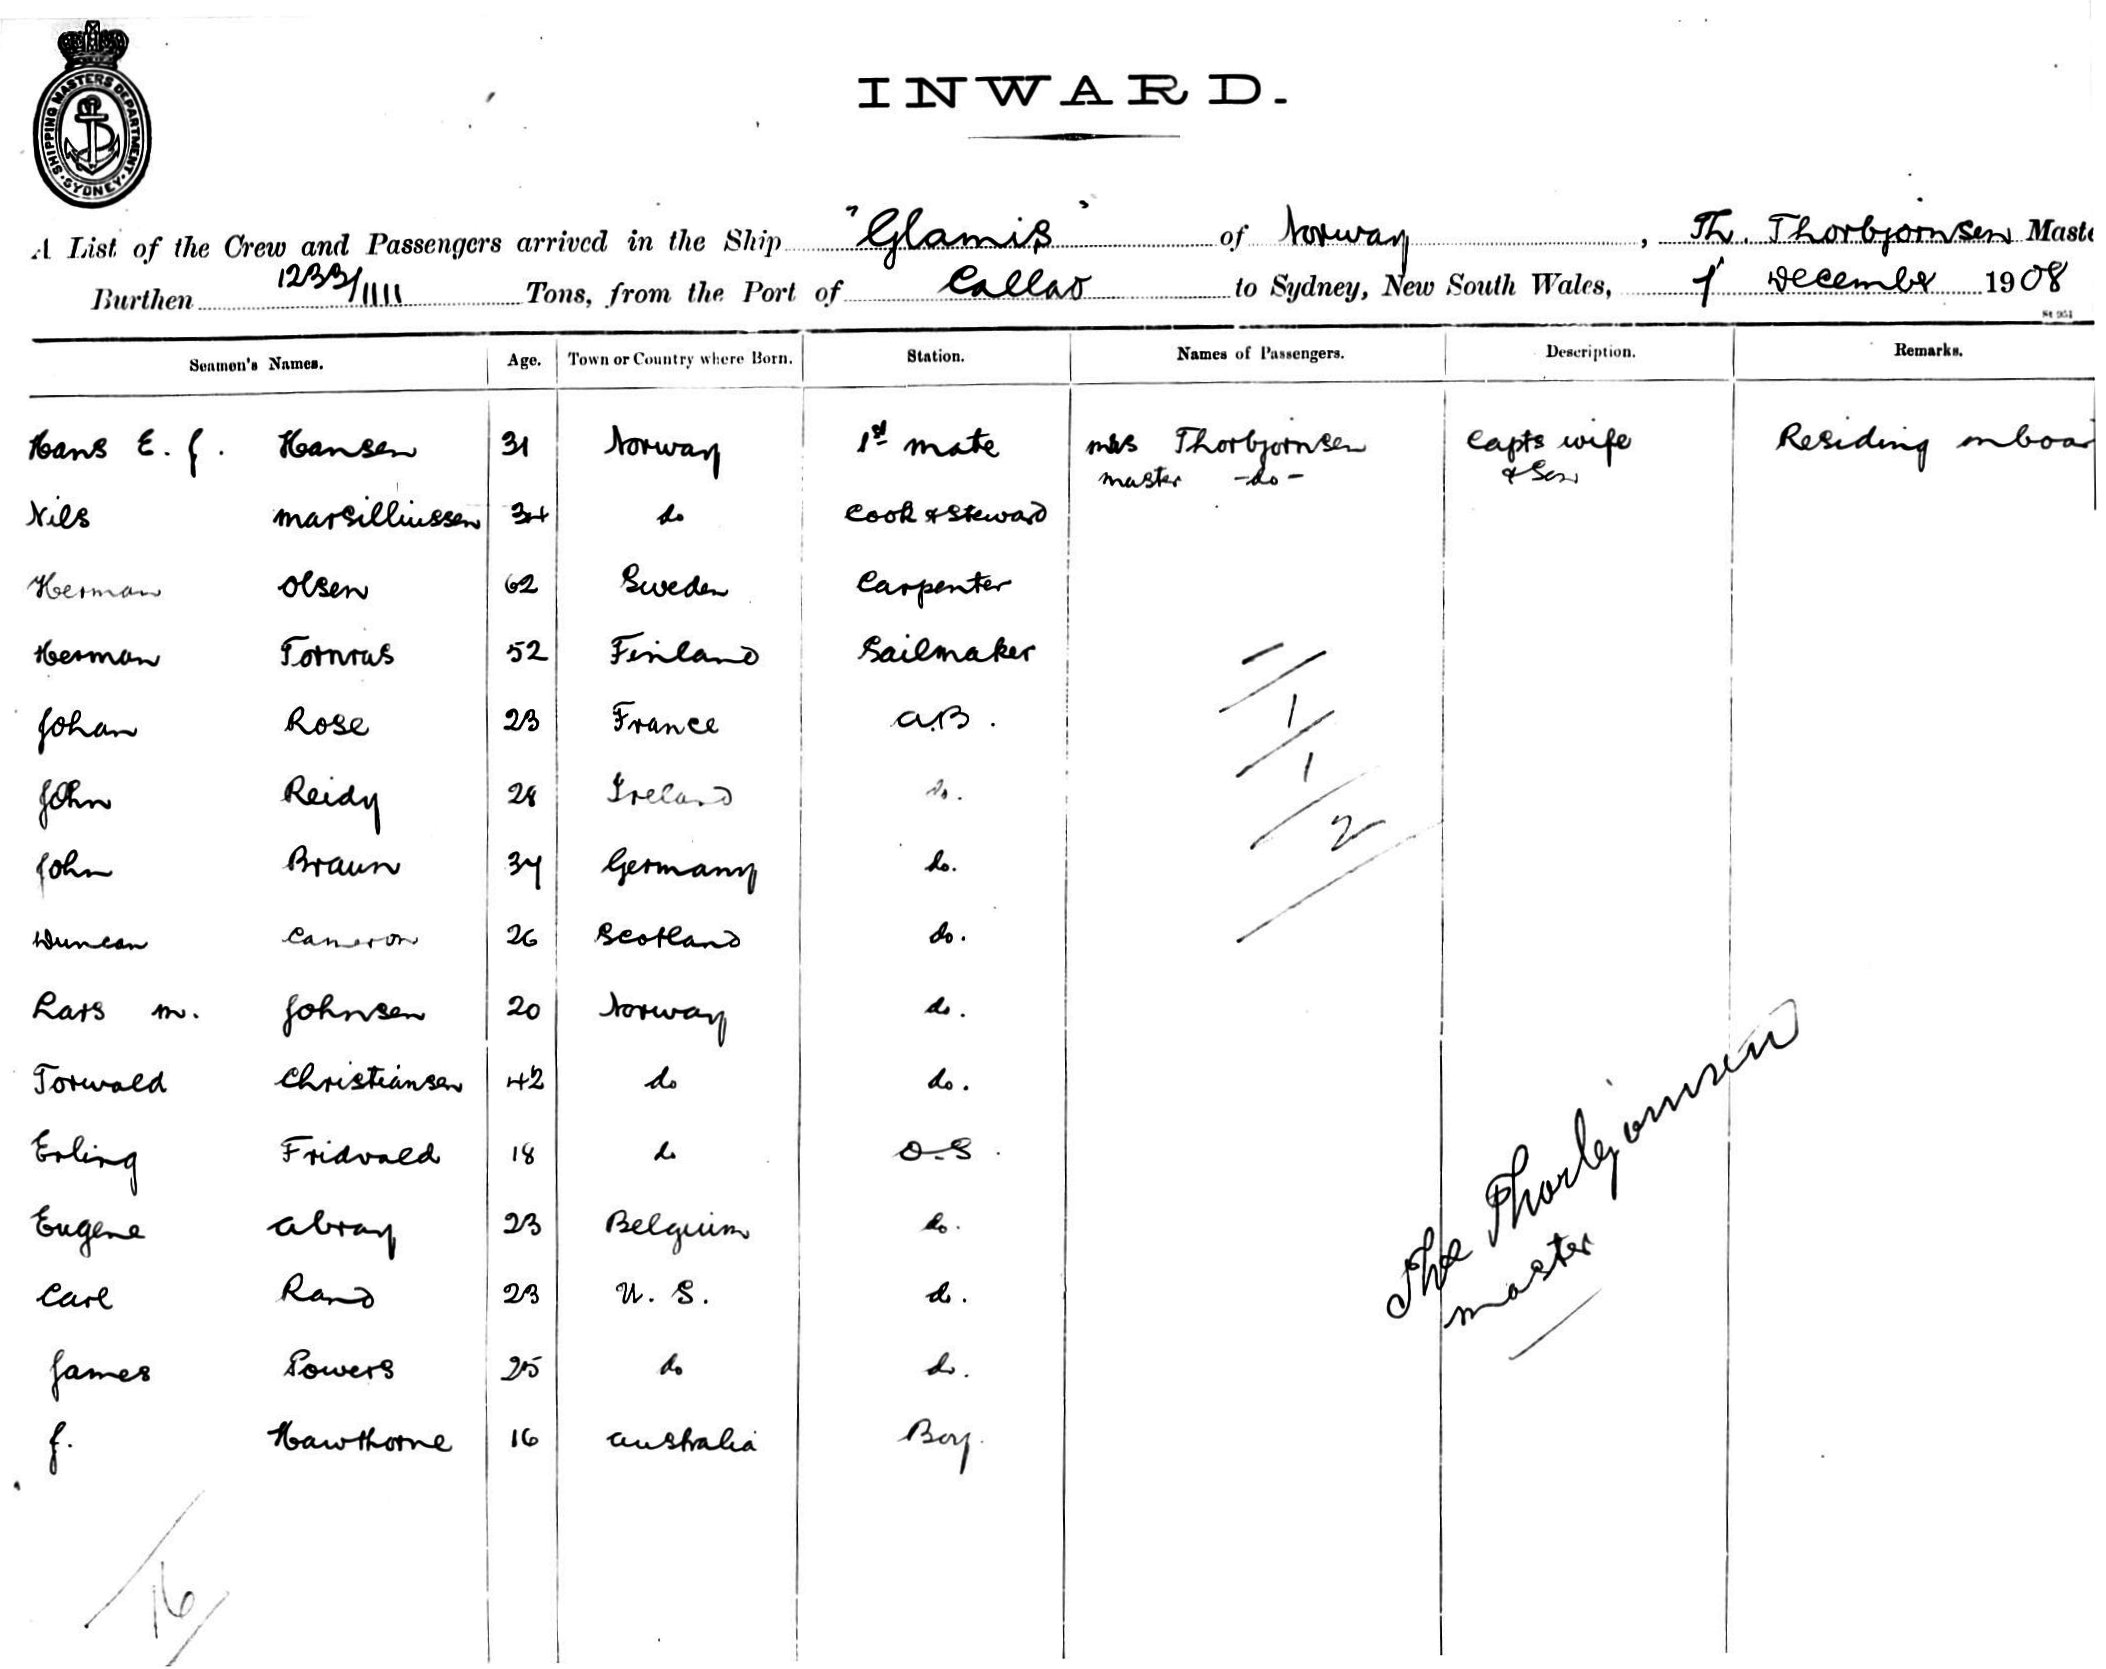 SHIPPING MASTERS DEPARTMENT. SYDNEY
INWARD.
A List of the Crew and Passengers arrived in the Ship "Glamis" of Norway, Th. Thorbjornsen Maste
Burthen 1233/1111 Tons, from the Port of Callao to Sydney, New South Wales, 1st December 1908
St 951
Seamen's Names. Age. Town or Country where Born. Station. Names of Passengers. Description. Remarks.
Hans E. J. Hansen 31 Norway 1st mate Mrs Thorbjornsen Capts wife Residing onboar
master -do- & Son
Nils Marsilliussen 34 do Cook & Steward
Herman Olsen 62 Sweden Carpenter
Herman Tornras 52 Finland Sailmaker
Johan Rose 23 France A.B.
John Reidy 28 Ireland do.
John Braun 34 Germany do.
Duncan Cameron 26 Scotland do.
Lars M. Johnsen 20 Norway do.
Torwald Christiansen 42 do do.
Erling Fridvald 18 do O.S.
Eugene Abray 23 Belgium do.
Carl Rand 23 U.S. do.
James Powers 25 do do.
J. Hawthorne 16 Australia Boy.
1
1
2
Thorbjörnsen
master
16